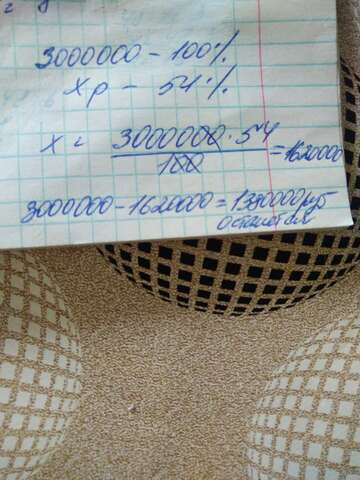 3000000 - 100%
Xр - 54%
X = 3000000 · 54
100
= 1620000
3000000 - 1620000 = 1380000 руб
останется